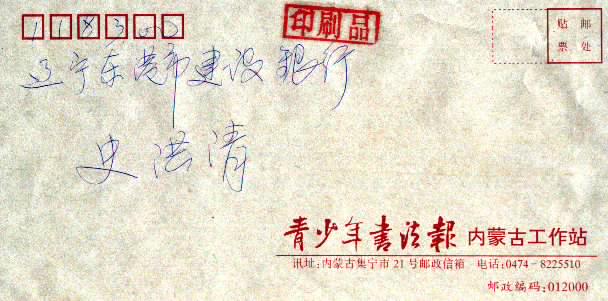 118300
印刷品
贴 邮
票 处
辽宁东港市建设银行
史洪清
青少年书法报 内蒙古工作站
讯址:内蒙古集宁市21号邮政信箱 电话:0474-8225510
邮政编码:012000